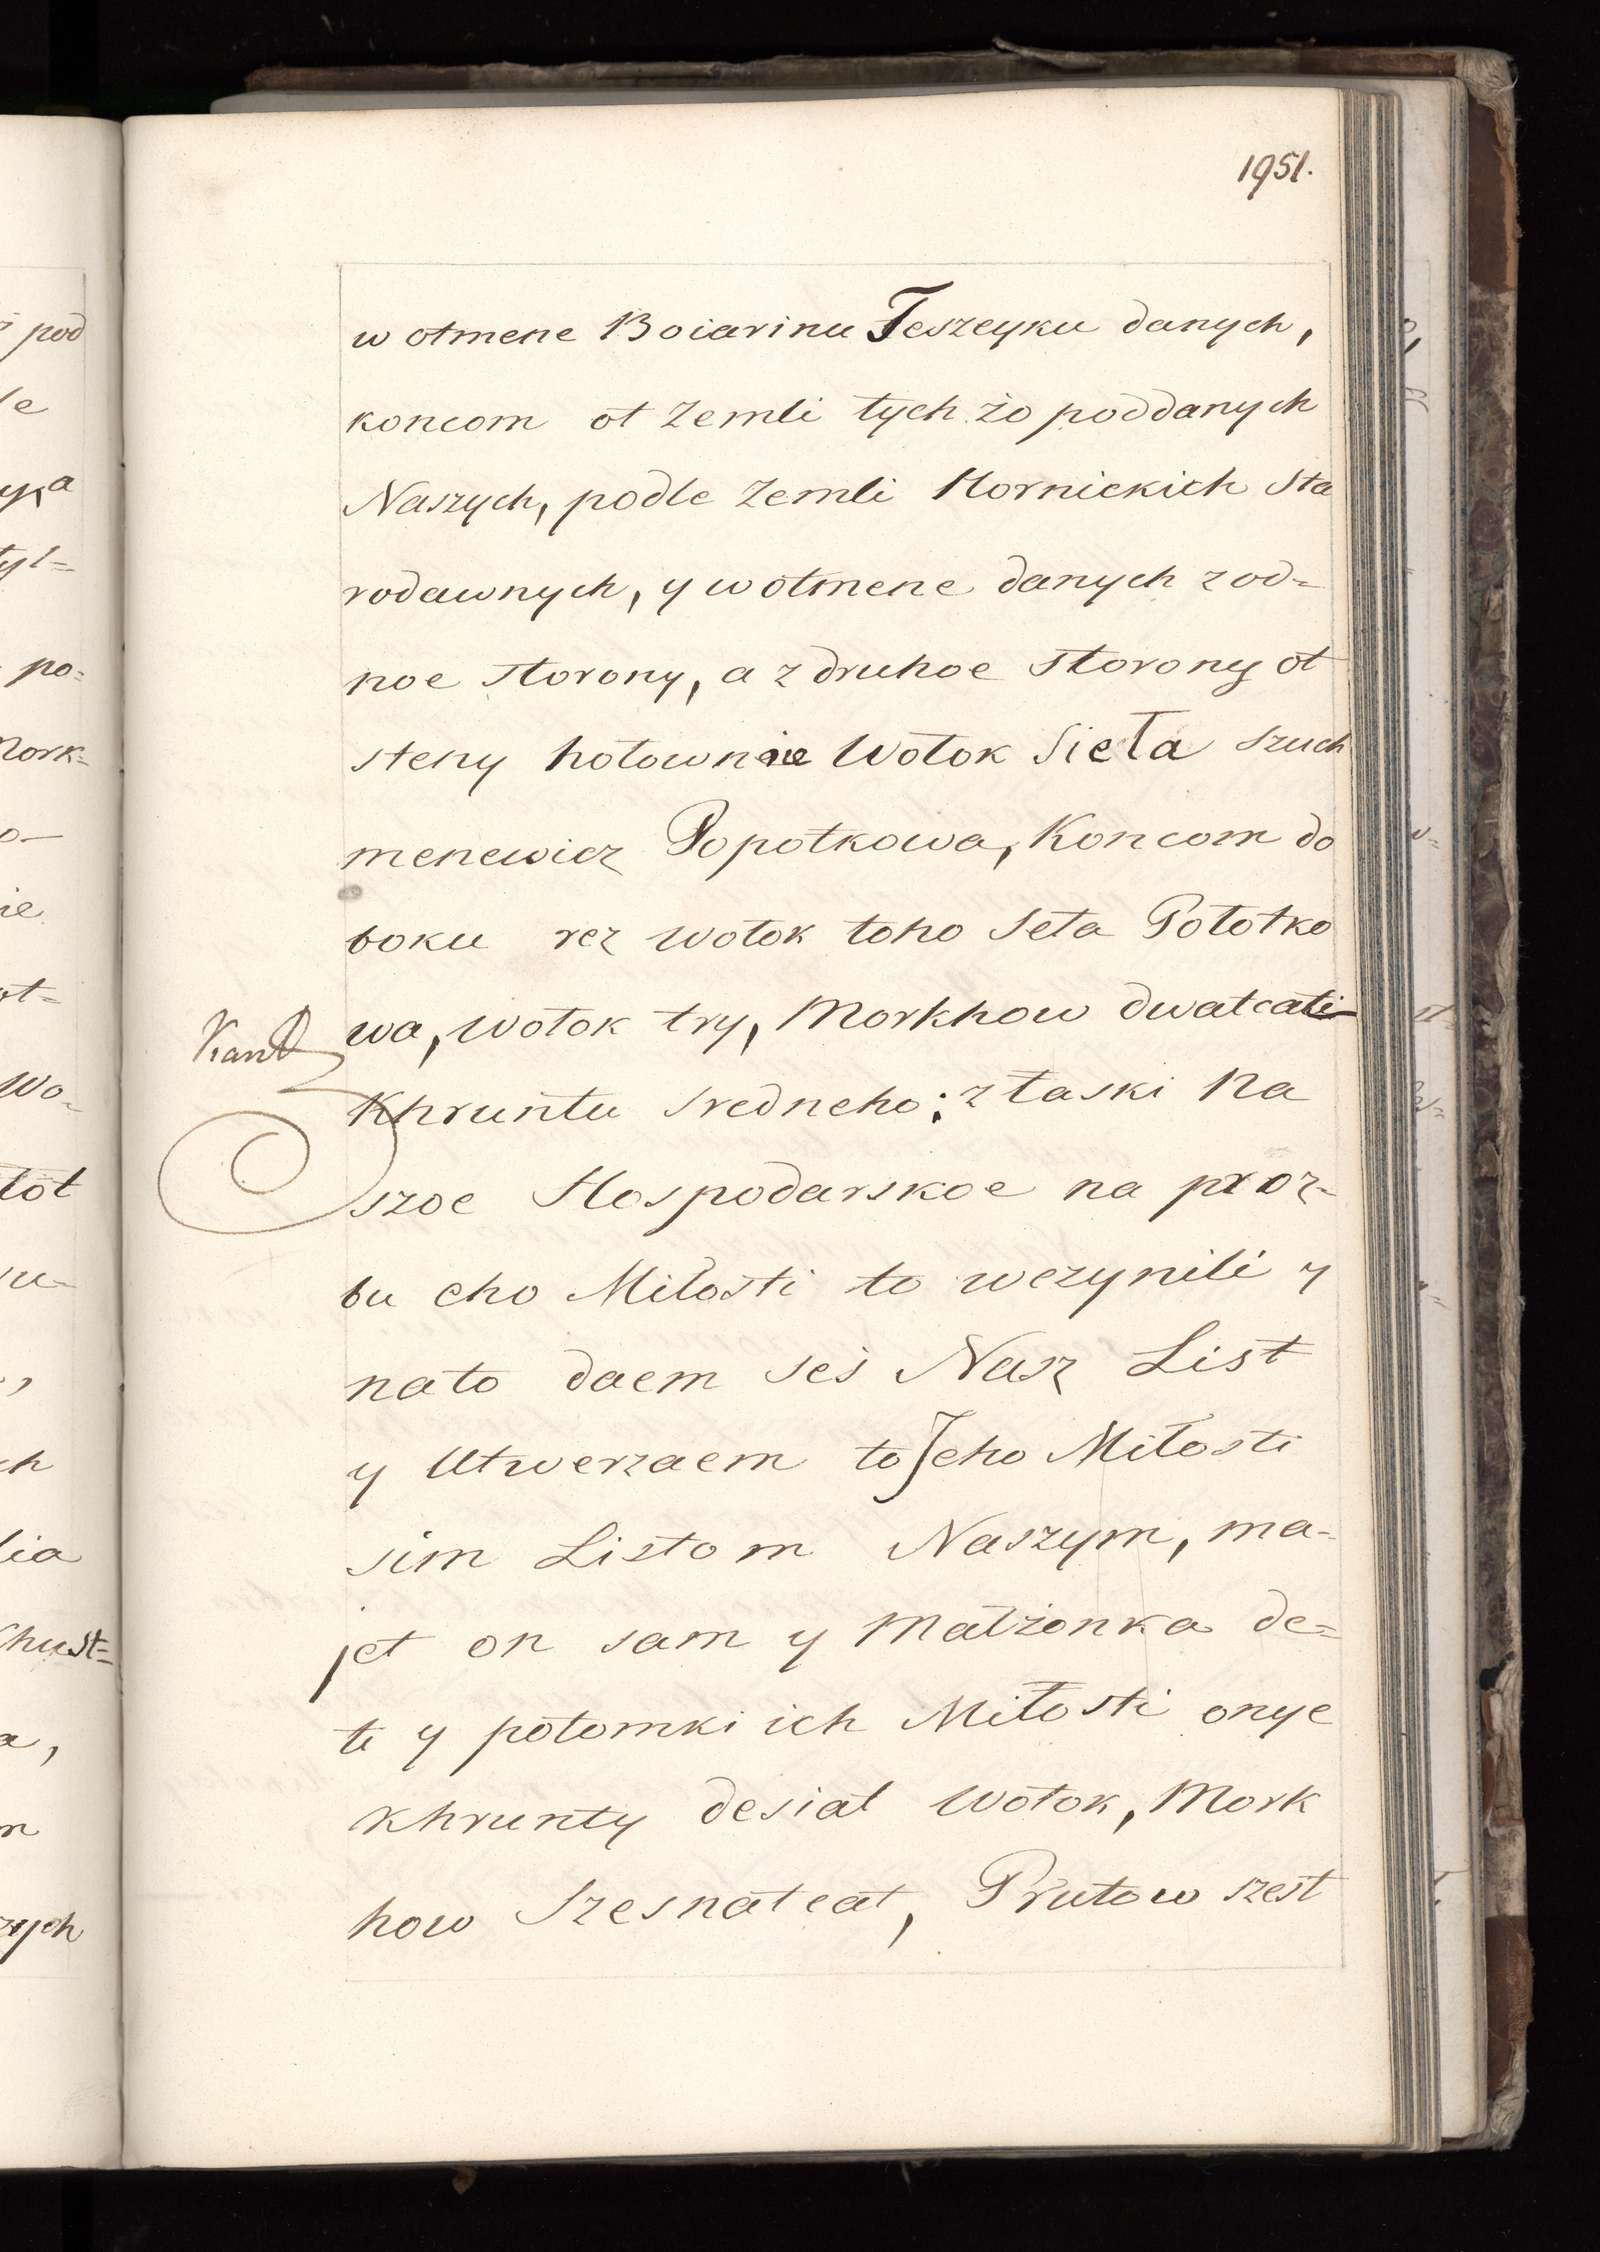 1951.
w otmene Boiarinu Teszeyku danych,
koncom ot Zemli tych żo poddanych
Naszych, podle Zemli Hornickich Sta
rodawnych, y w otmene danych z od=
noe storony, a z druhoe storony ot
steny hołownie Wołok Sieła Szuch
menewicz Popotkowa, Koncom do
boku rez wołok toho Seła Połotko
wa, wołok try, Morkhow dwatcati
Khruntu Sredneho; z łaski Na
szoe Hospodarskoe na proz=
bu eho Miłosti to wczynili y
na to daem ses Nasz List
y Utwerzaem to Jeho Miłosti
sim Listom Naszym, ma=
jet on sam y Małżonka de=
ti y potomki ich Miłosti onye
Khrunty desiat Wołok, Mork
how Szesnatcat, Prutow szest